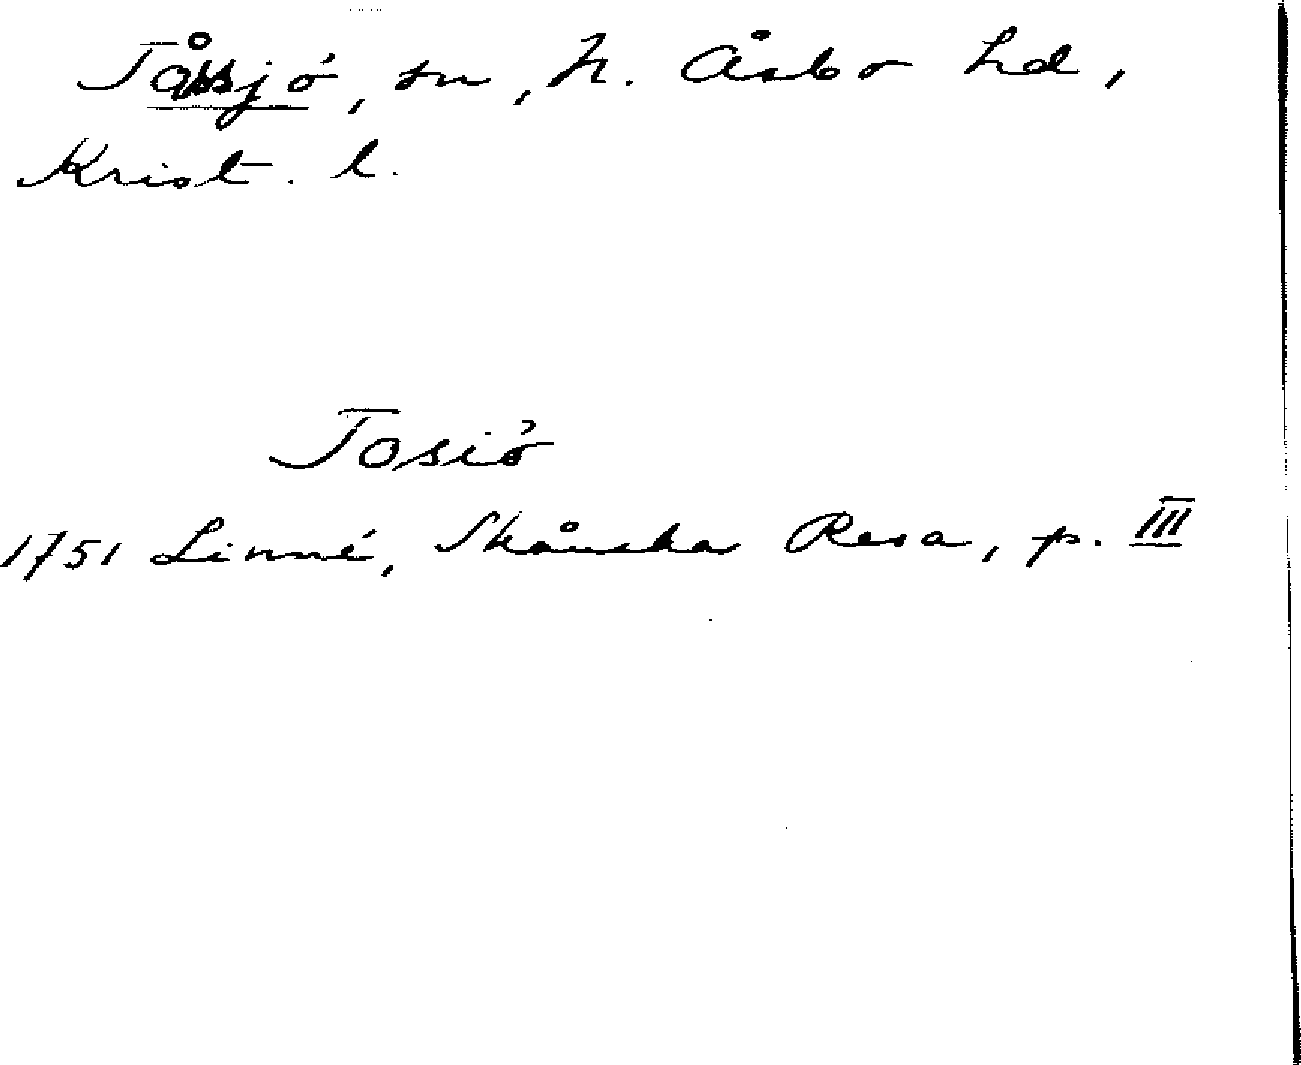 Tåssjö, sn, N. Åsbo hd,
Krist. l.
Tosiö
1751 Linné, Skånska Resa, p. III